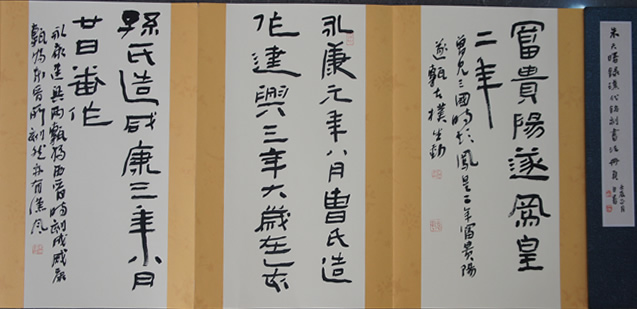 漢代銘刻書法冊頁
富貴陽遂鳳皇
二年
曾見三國時期鳳皇二年富貴陽
遂甎古樸生動
永康元年八月曹氏造
作建興三年大歲在乙亥
孫氏造咸康三年八月
廿日番作
永康建興兩甎為西晉時刻咸康
甎為東晉所刻然亦有漢風